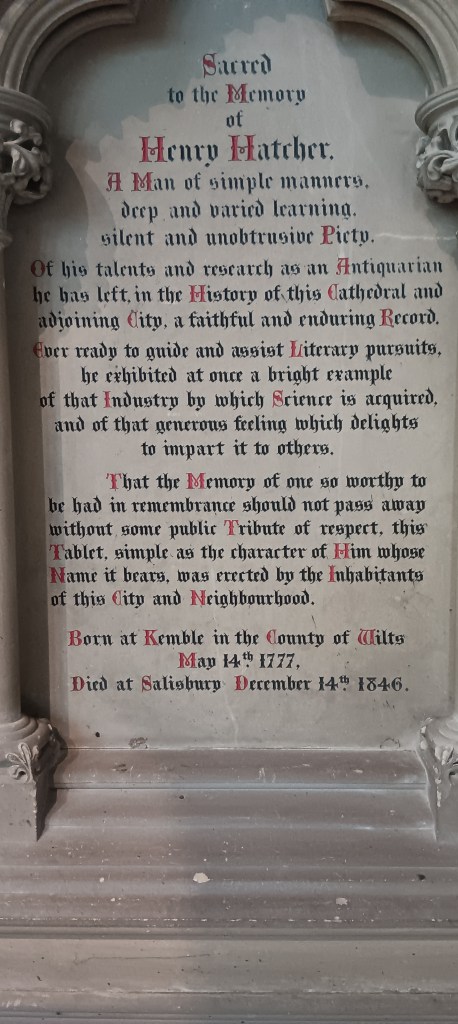 Sacred
to the Memory
of
Henry Hatcher.
A Man of simple manners,
deep and varied learning,
silent and unobtrusive Piety.
Of his talents and research as an Antiquarian
he has left, in the History of this Cathedral and
adjoining City, a faithful and enduring Record.
Ever ready to guide and assist Literary pursuits,
he exhibited at once a bright example
of that Industry by which Science is acquired,
and of that generous feeling which delights
to impart it to others.
That the Memory of one so worthy to
be had in remembrance should not pass away
without some public Tribute of respect, this
Tablet, simple as the character of Him whose
Name it bears, was erected by the Inhabitants
of this City and Neighbourhood.
Born at Kemble in the County of Wilts
May 14th 1777,
Died at Salisbury December 14th 1846.